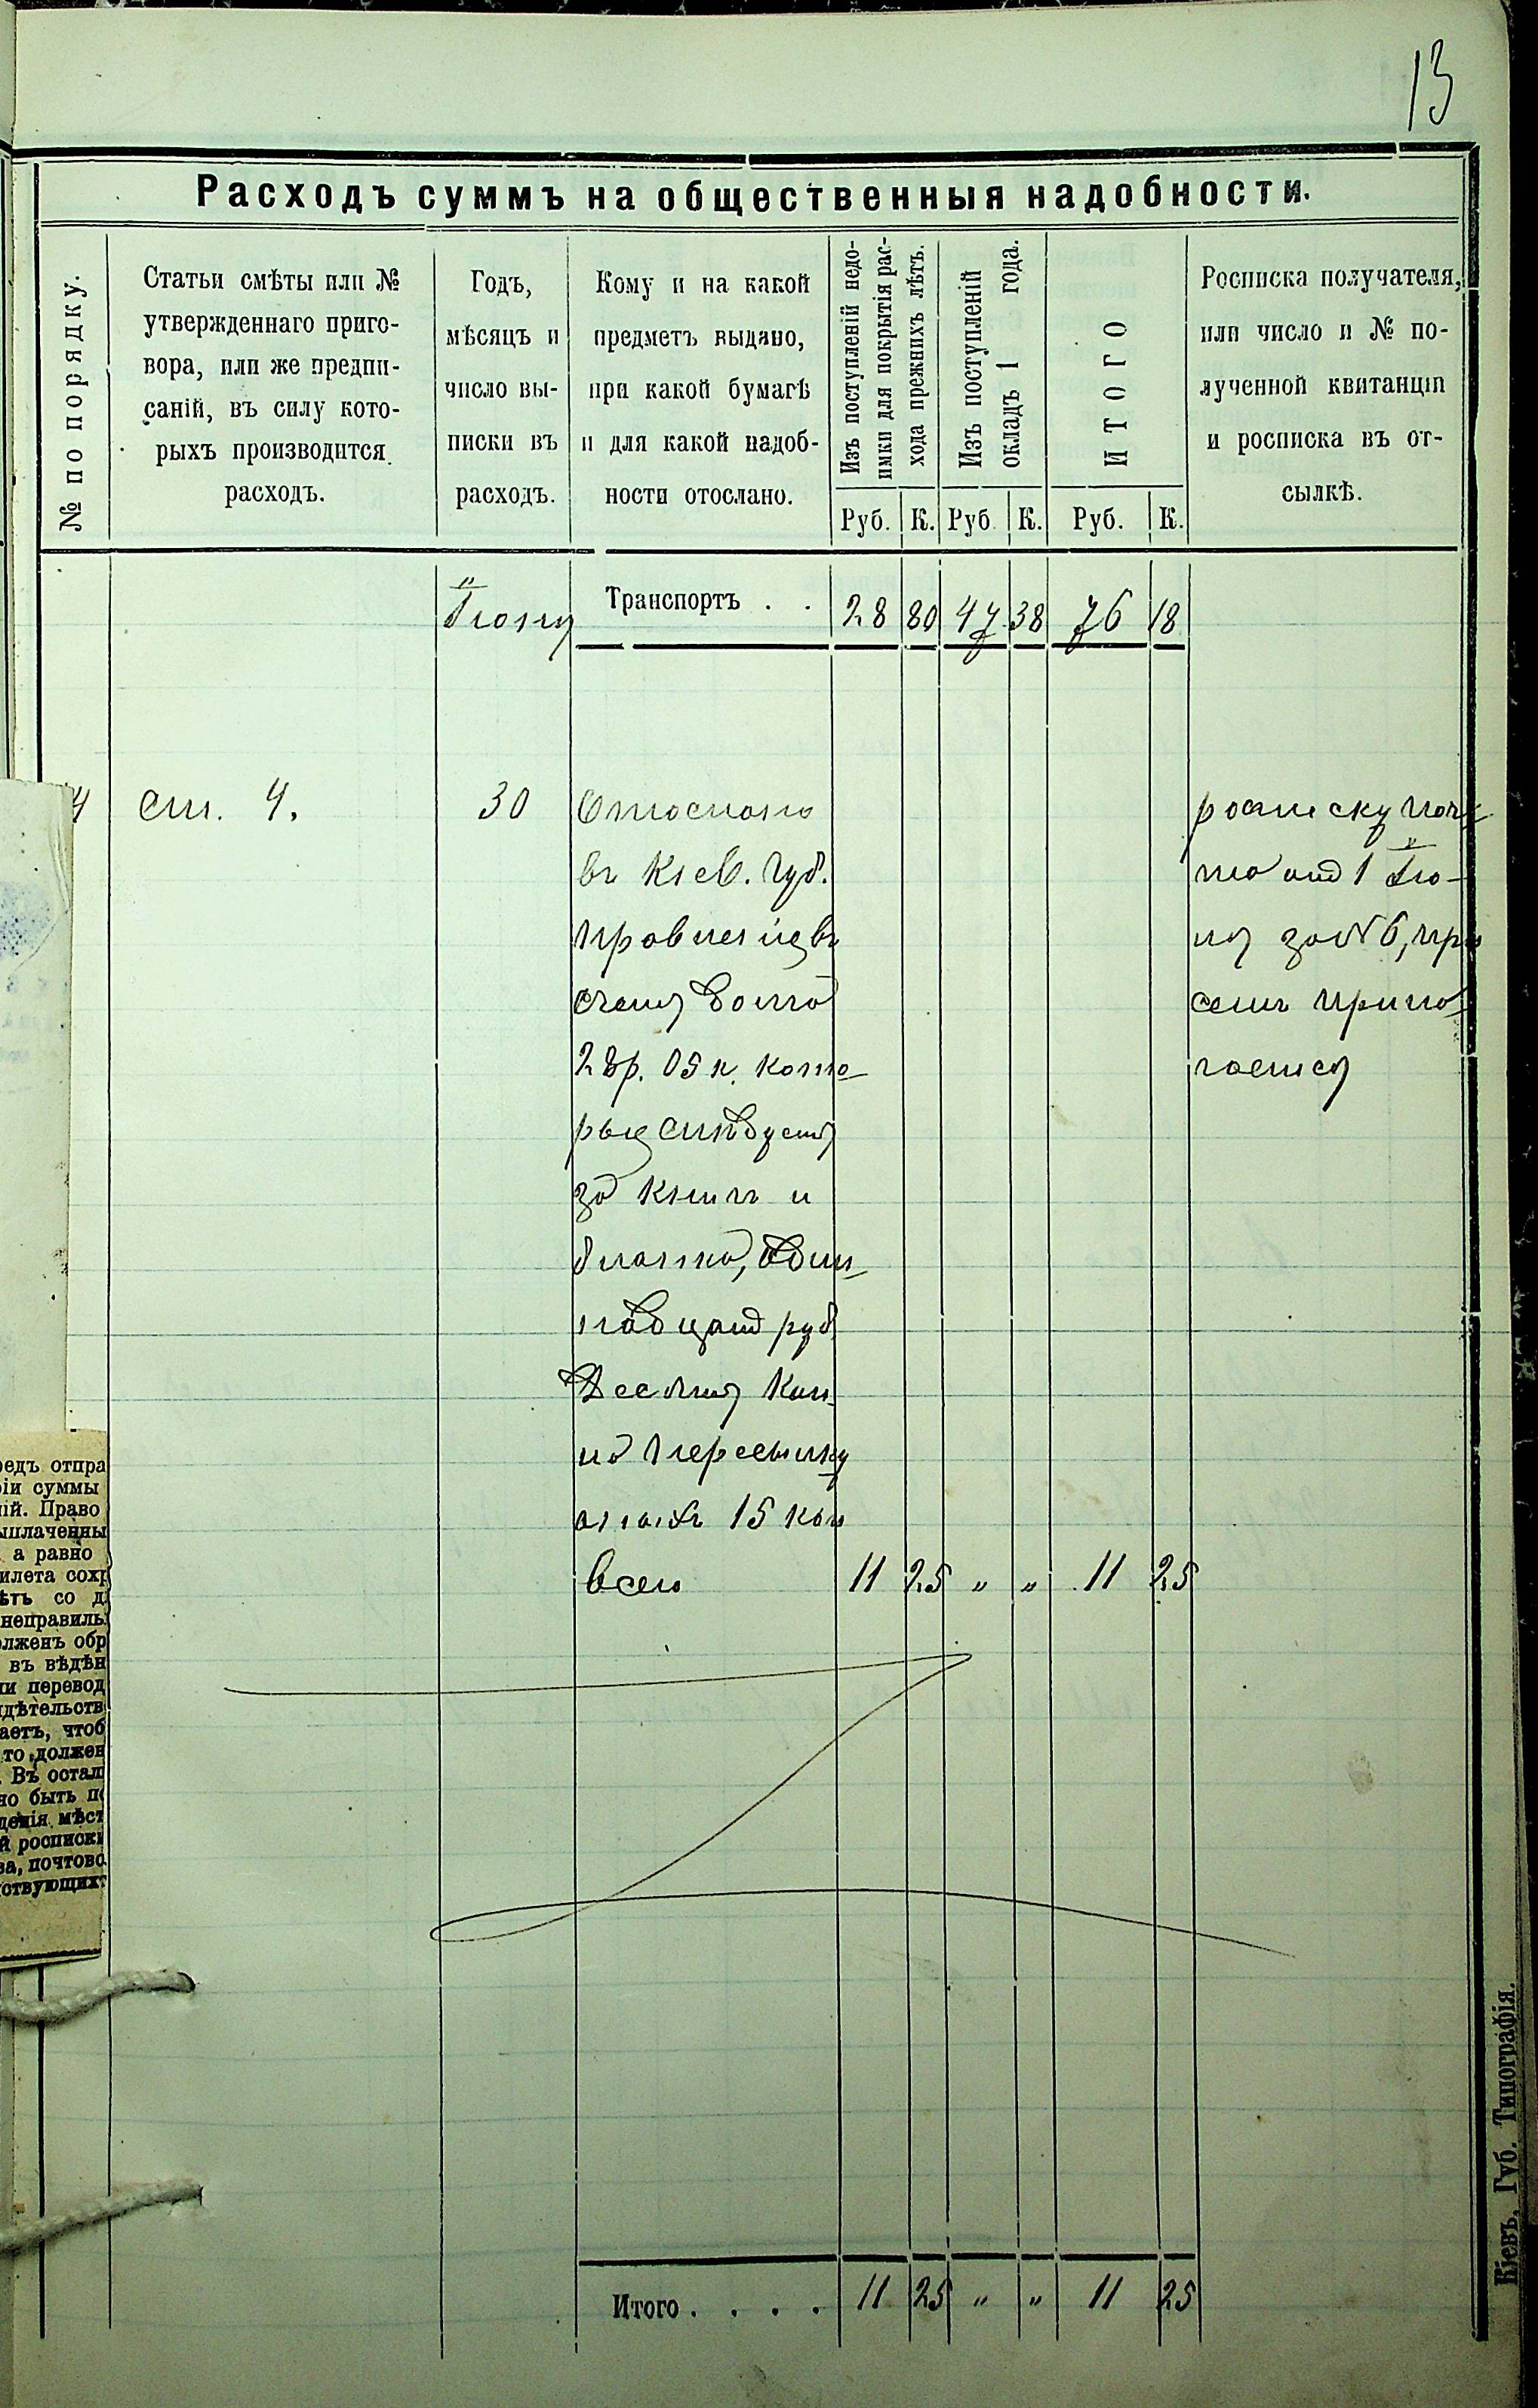 13
Расходъ суммъ на общественныя надобности.
№ по порядку.
Статьи смѣты или №
утвержденнаго приго-
вора, или же предпи-
саній, въ силу кото-
рыхъ производится
расходъ.
Годъ,
мѣсяцъ и
число вы-
писки въ
расходъ.
Кому и на какой
предметъ выдано,
при какой бумагѣ
и для какой надоб-
ности отослано.
Изъ поступленій недо-
имки для покрытія рас-
хода прежнихъ лѣтъ.
Изъ поступленій
окладъ 1 года.
ИТОГО
Росписка получателя,
или число и № по-
лученной квитанціи
и росписка въ от-
сылкѣ.
Руб. К. Руб. К. Руб. К.
Іюня Транспортъ . . 28 80 47 38 76 18
4 ст. 4. 30 Отослано росписку поч-
въ Кіев. Губ. та отъ 1 Ію-
Правленіе въ ня за № 6, при
счетъ долга семъ прила-
28р. 05 к. кото- гается
рые слѣдуетъ
за книги и
бланки, один-
надцать руб.
Десять коп.
на пересылку
оныхъ 15 коп
всего 11 25 „ „ 11 25
Итого . . . . 11 25 „ „ 11 25
редъ отпра
ріи суммы
ній. Право
ыплаченны
а равно
илета сохр
ѣтъ со д
неправиль
олженъ обр
въ вѣдѣн
ли перевод
идѣтельств
аетъ, чтоб
то должен
Въ остал
но быть п
денія мѣст
й росписки
ва, почтово
ствующихъ
Кіевъ, Губ. Типографія.